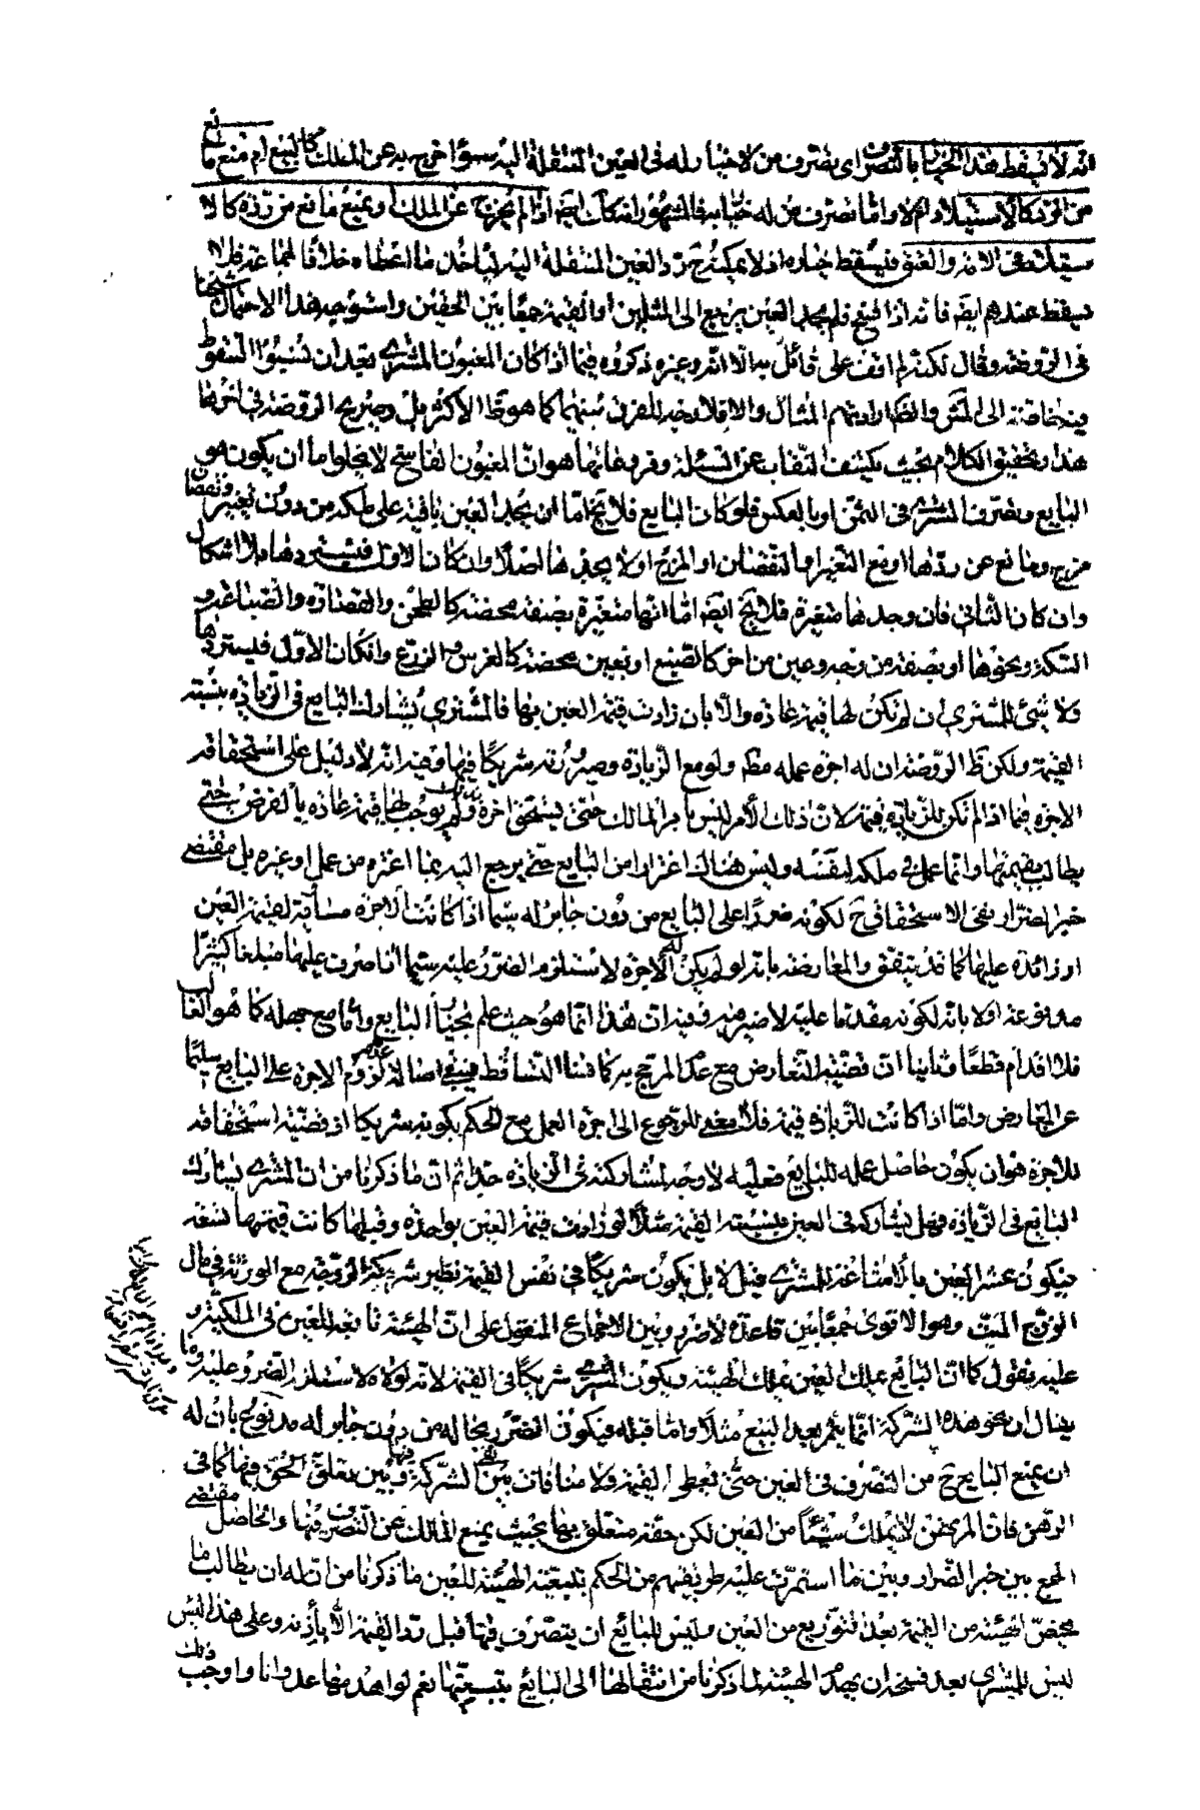 انه لا يسقط هذا الخيار بالتصرف اى بتصرف من لا خيار له فى العين المنتقلة اليه سواء خرج به عن الملك كالبيع ام منع مانع
من الرد كالاستيلاد ام لا واما تصرف من له خيار فالمشهور انه كك ايضا اذا لم يخرج عن الملك او يمنع مانع من رده كالا
ستيلاد فى الامة والعتق فيسقط خياره اذ لا يمكنه ح رد العين المنتقلة اليه ليأخذ ما اعطاه خلافا لجماعة فلا
يسقط عندهم ايضا فانه اذا فسخ فلم يجد العين يرجع الى المثل او القيمة جمعا بين الحقين واستوجه هذا الاحتمال شيخنا
فى الروضة وقال لكنه لم اقف على قائل به الا انه وغيره ذكروه فيما اذا كان المغبون المشترى بعد ان نسبوا السقوط
فيه خاصة الى المش والظ ارادتهم المثال والا فلا وجه للفرق بينهما كما هو ظ الاكثر بل وصريح الروضة فى اخرها
هذا وتحقيق الكلام بحيث يكشف النقاب عن المسئلة وفروعاتها هو ان المغبون الفاسخ لا يخلو اما ان يكون هو
البايع وتصرف المشترى فى الثمن او بالعكس فلو كان البايع فلا يخ اما ان يجد العين باقية على ملكه من دون تغيير ونقصان
مزج ومانع عن ردها او مع التغير او النقصان او المزج او لا يجدها اصلا وان كان الاول فيستردها بلا اشكال
وان كان الثانى فان وجدها متغيرة فلا يخ ايضا اما انها متغيرة بصفة محضة كالطحن والقصارة والصياغة و
السكة ونحوها او بصفة من وجه وعين من اخر كالصبغ او بعين محضة كالغرس والزرع وانكان الاول فليستردها
ولا شئ للمشترى ان لم تكن لها قيمة عادة والا بان زادت قيمة العين بها فالمشترى يشارك البايع فى الزيادة بنسبته
القيمة ولكن ظ الروضة ان له اجرة عمله مط ولو مع الزيادة وصيرورته شريكا فيها وفيه انه لا دليل على استحقاقه
الاجرة فيما اذا لم تكن للزيادة قيمة لان ذلك الامر ليس بامر المالك حتى يستحق اجرة ولم يوجب لها قيمة عادة بالفرض حتى
يطالب بقيمتها وانما عمل فى ملكه لنفسه وليس هناك اغترار من البايع حتى يرجع اليه بما اغتره من عمل او غيره بل مقتضى
خبر الضرار نفى الاستحقاق ح لكونه ضررا على البايع من دون جابر له سيما اذا كانت الاجرة مساوية لقيمة العين
او زائدة عليها كما قد يتفق والمعارضة بانه لو لم يكن له الاجرة لاستلزم الضرر عليه سيما اذا صرف عليها مبلغا كثيرا
مدفوعة اولا بانه لكونه مقدما عليه لا ضير فيه وفيه ان هذا انما هو حيث علم بخيار البايع واما مع جهله كما هو الغالب
فلا اقدام قطعا وثانيا ان قضية التعارض مع عدم المرجح من كافتنا التساقط فيبقى اصالة عدم لزوم الاجرة على البايع سليما
عن المعارض واما اذا كانت للزيادة قيمة فلا معنى للرجوع الى اجرة العمل مع الحكم بكونه شريكا اذ قضية استحقاقه
للاجرة هو ان يكون حاصل عمله للبايع فعليه لا وجه لمشاركته فى الزيادة جدا ثم ان ما ذكرنا من ان المشترى يشارك
البايع فى الزيادة فهل يشاركه فى العين بنسبته القيمة مثلا لو زادت قيمة العين بواحدة وقبلها كانت قيمتها تسعة
فيكون عشر العين بالمشاعة للمشترى قيل لا بل يكون شريكا فى نفس القيمة نظير شركة الزوجة مع الورثة فى مال
الزوج الميت وهو الاقوى جمعا بين قاعدة لا ضرر وبين الاجماع المنقول على ان الهيئة تابعة للعين فى الملكية و
عليه نقول كما ان البايع يملك العين يملك الهيئة ويكون المشترى شريكا فى القيمة لانه لولاه لاستلزم الضرر عليه وما
يقال ان نحو هذه الشركة انما يثمر بعد البيع مثلا واما قبله فيكون الضرر بحاله من دون جابر له مدفوع بان له
ان يمنع البايع ح من التصرف فى العين حتى يعطى القيمة ولا منافات بين نفى الشركة فيها وبين تعلق الحق فيها كما فى
الرهن فان المرتهن لا يملك شيئا من العين لكن حقه متعلق بها بحيث يمنع المالك عن التصرف فيها والحاصل مقتضى
الجمع بين خبر الضرار وبين ما استمرت عليه طريقتهم من الحكم بتبعية الهيئة للعين ما ذكرنا من ان له ان يطالب ما
يخص الهيئة من القيمة بعد توزيع من العين وليس للبايع ان يتصرف فيها قبل رد القيمة الا بأذنه وعلى هذا ليس
ليس للمشترى بعد فسخه ان يهدم الهيئة لما ذكرنا من انتقالها الى البايع بتبعيتها نعم لو اهدمها عدوانا واوجب ذلك